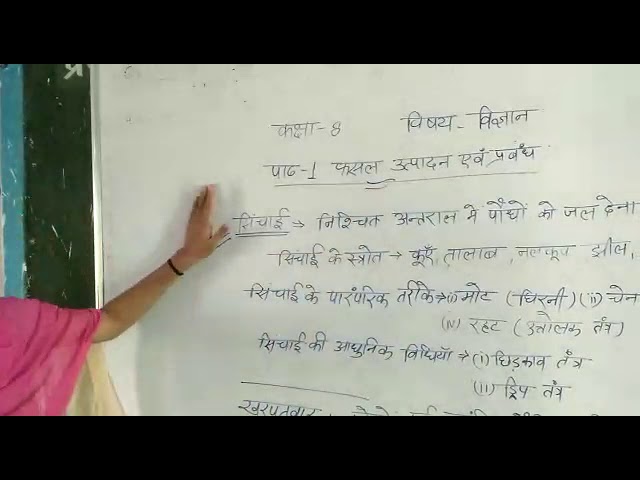 कक्षा-8 विषय- विज्ञान
पाठ-1 फसल उत्पादन एवं प्रबंध
सिंचाई → निश्चित अन्तराल में पौधों को जल देना
सिंचाई के स्त्रोत → कूएँ, तालाब, नलकूप झील,
सिंचाई के पारंपरिक तरीके → (i) मोट (घिरनी) (ii) चेन
(iv) रहट (उत्तोलक तंत्र)
सिंचाई की आधुनिक विधियाँ → (i) छिड़काव तंत्र
(ii) ड्रिप तंत्र
खरपतवार